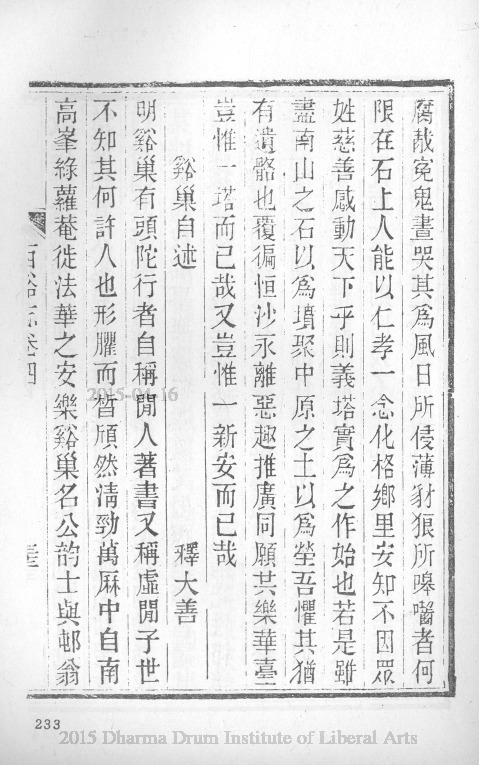 腐哉寃鬼晝哭其爲風日所侵薄豺狼所嘷嚙者何
限在石上人能以仁孝一念化格鄉里安知不因眾
姓慈善感動天下乎則義塔實爲之作始也若是雖
盡南山之石以爲墳聚中原之土以爲塋吾懼其猶
有遺骼也覆徧恒沙永離惡趣推廣同願共樂華臺
豈惟一塔而已哉又豈惟一新安而已哉
谿巢自述 釋大善
明谿巢有頭陀行者自稱閒人著書又稱虛閒子世
不知其何許人也形臞而皙頎然淸勁萬厤中自南
高峯綠蘿菴徙法華之安樂谿巢名公韵士與邨翁
西谿志卷四
233
2015-04-16
2015 Dharma Drum Institute of Liberal Arts